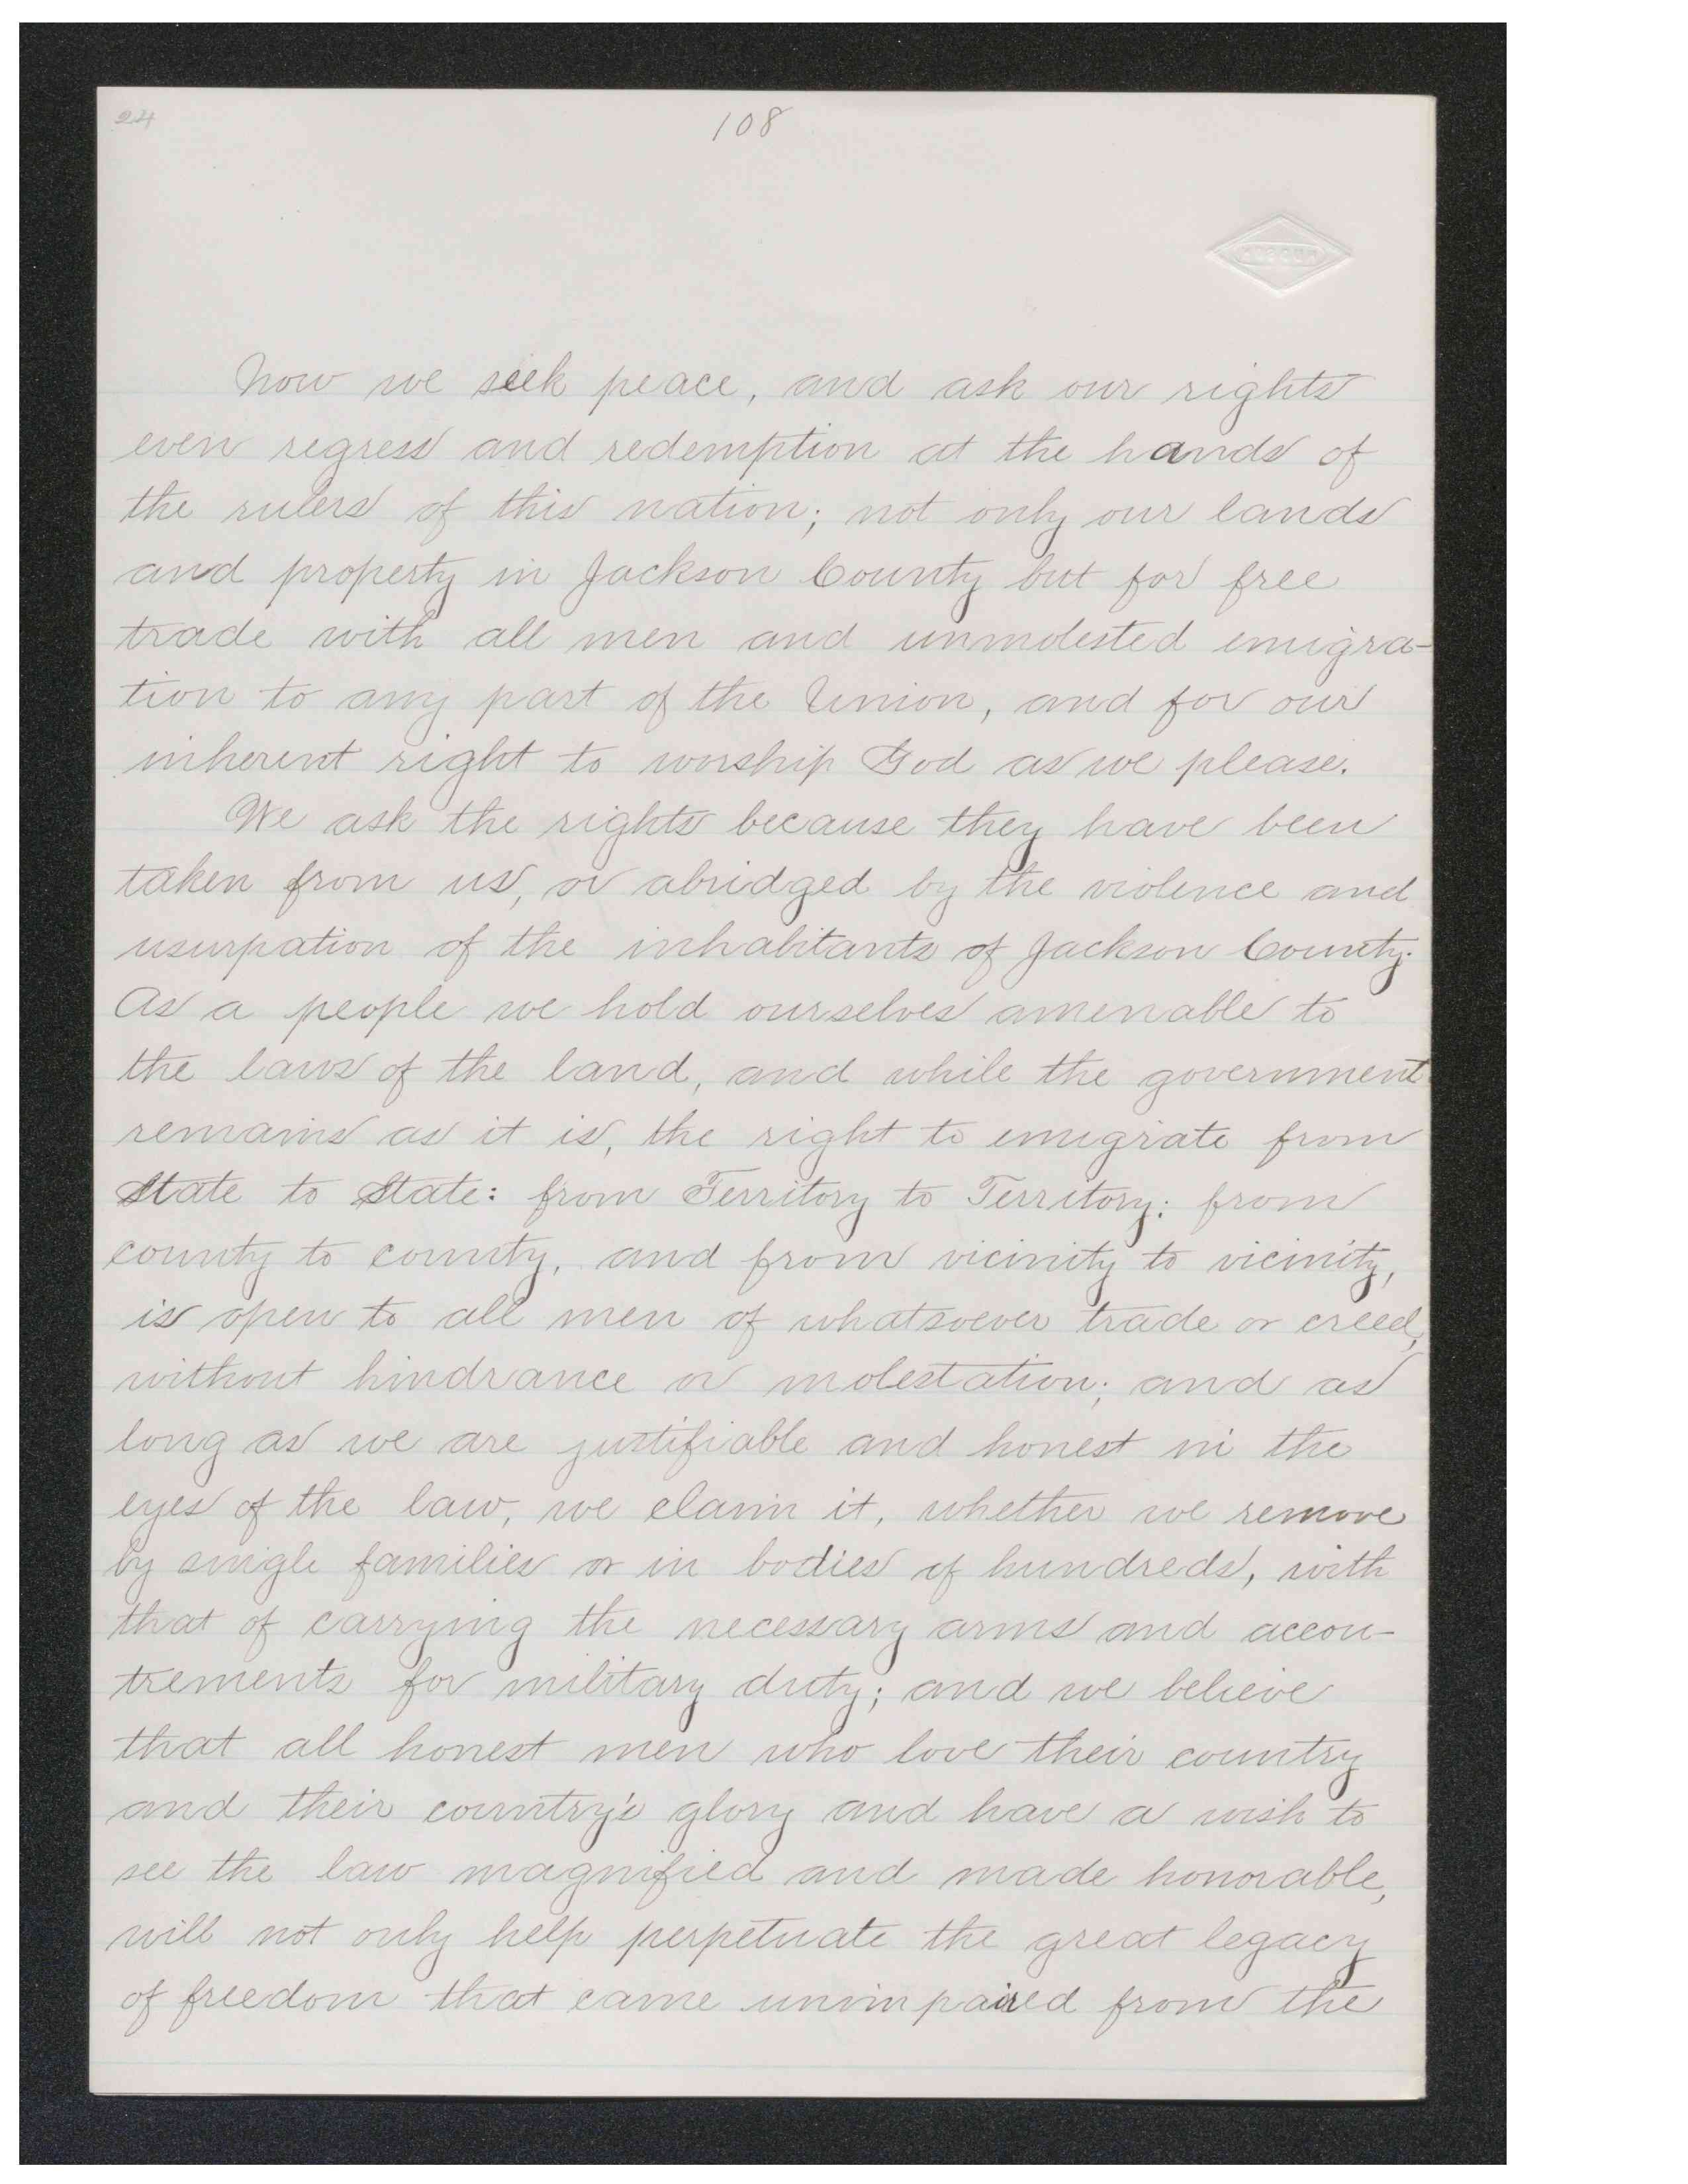 24
108
Now we seek peace, and ask our rights
even regress and redemption at the hands of
the rulers of this nation; not only our lands
and property in Jackson County but for free
trade with all men and unmolested emigra-
tion to any part of the Union, and for our
inherent right to worship God as we please.
We ask the rights because they have been
taken from us, or abridged by the violence and
usurpation of the inhabitants of Jackson County.
As a people we hold ourselves amenable to
the laws of the land, and while the government
remains as it is, the right to emigrate from
State to State: from Territory to Territory: from
county to county, and from vicinity to vicinity,
is open to all men of whatsoever trade or creed,
without hindrance or molestation; and as
long as we are justifiable and honest in the
eyes of the law, we claim it, whether we remove
by single families or in bodies of hundreds, with
that of carrying the necessary arms and accou-
trements for military duty; and we believe
that all honest men who love their country
and their country's glory and have a wish to
see the law magnified and made honorable,
will not only help perpetuate the great legacy
of freedom that came unimpaired from the